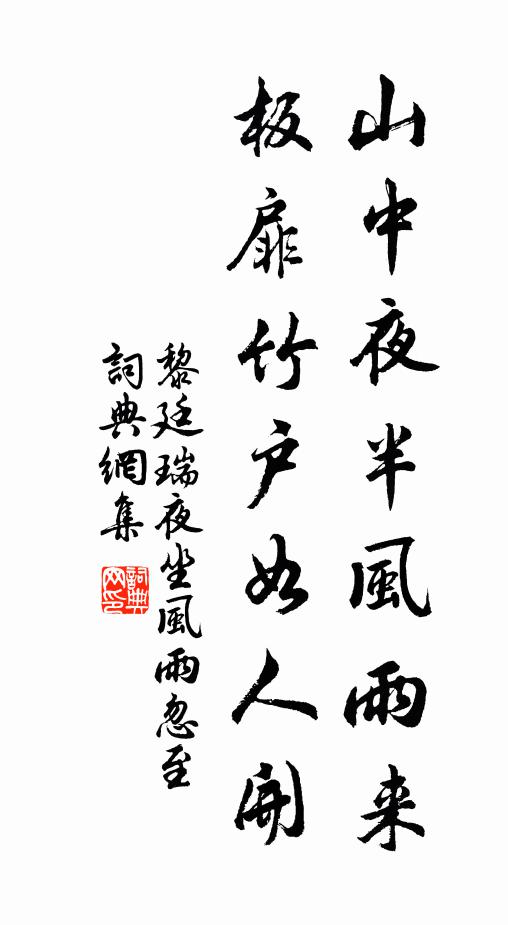 山中夜半風雨来
板扉竹户如人開
黎廷瑞夜坐風雨忽至
詞典網集
詞典网印